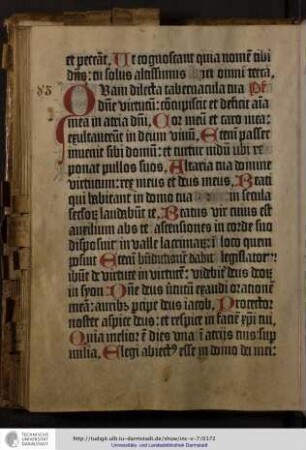 et pereāt, Ut cognoscant quia nomē tibi
dn̄s: tu solus altissimus omni terra,
83
QVam dilecta tabernacula tua
dn̄e virtutū: cōcupiscit et deficit aīa
mea in atria dn̄i, Cor meū et caro mea:
exultauerūt in deum viuū, Etenī passer
inuenit sibi domū: et turtur nidū ubi re
ponat pullos suos, Altaria tua domine
virtutum: rex meus et deus meus, Beati
qui habitant in domo tua in secula
seclorꝝ laudabūt te, Beatus vir cuius est
auxilium abs te: ascensiones in corde suo
disposuit in valle lacrimarꝝ: ī loco quem
posuit Etenī bn̄dictionē dabit legislator
ibūt de virtute in virtutē: videbit̄ deus deorꝝ
in syon Dn̄e deus virtutū exaudi orationē
meā: auribꝰ ꝑcipe deus iacob, Protector
noster aspice deus: et respice in faciē xp̄i tui,
Quia melior ē dies vna ī atrijs tuis sup
milia, Elegi abiectꝰ esse in domo dei mei:
TECHNISCHE
UNIVERSITÄT
DARMSTADT
http://tudigit.ulb.tu-darmstadt.de/show/inc-v-7/0172
Universitäts- und Landesbibliothek Darmstadt